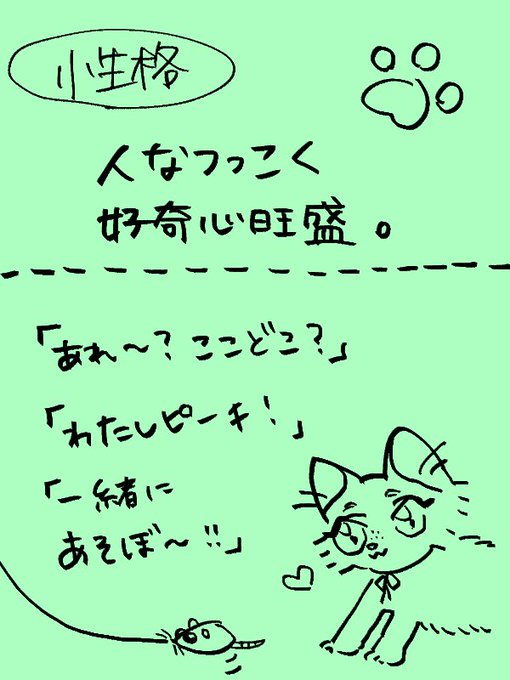 性格
人なつっこく
好奇心旺盛。
「あれ〜？ここどこ？」
「わたしピーチ！」
「一緒に
あそぼ〜!!」